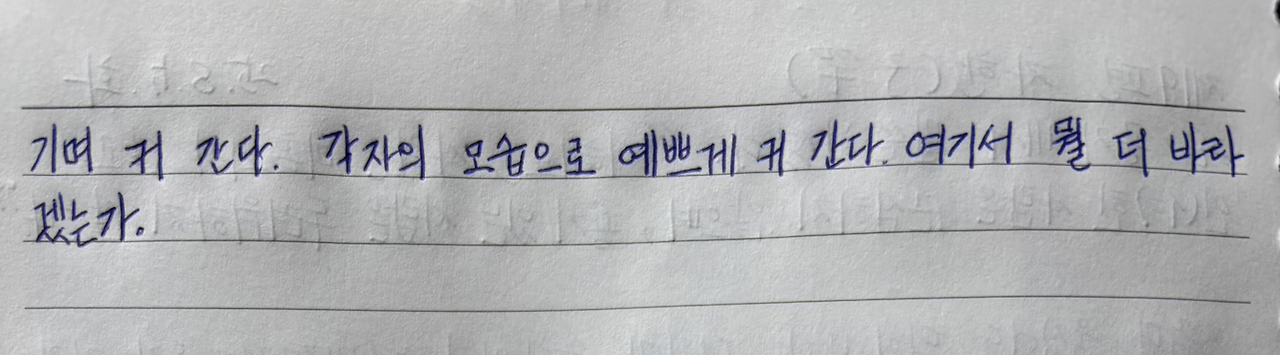 기며 커 간다. 각자의 모습으로 예쁘게 커 간다. 여기서 뭘 더 바라
겠는가.